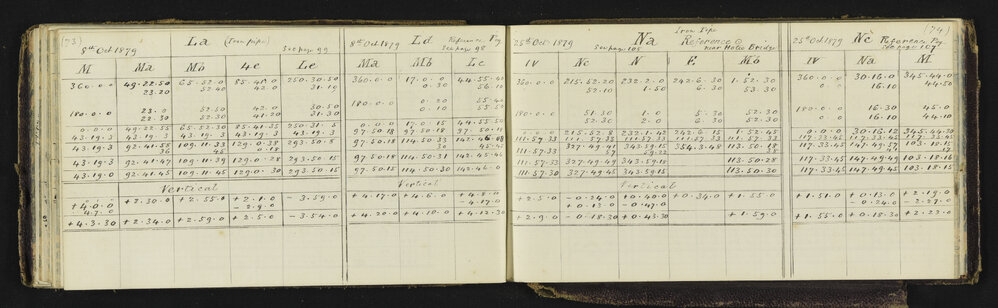 (73)
8th Oct 1879 La (Iron pipe) See page 99
M Ma Mo Le
360.0.0 49.22.50 65.52.0 85.41.0 250.30.50
23.20 52.40 42.0 31.10
180.0.0 23.0 52.50 42.0 30.50
22.30 52.30 41.20 31.30
0.0.0 49.22.55 65.52.30 85.41.35 250.31.5
43.19.3 43.19.3 43.19.3 43.19.3 43.19.3
43.19.3 92.41.58 109.11.33 129.0.38 293.50.8
43.19.3 92.41.47 109.11.39 129.0.28 293.50.15
43.19.0 92.41.45 109.11.45 129.0.30 293.50.15
Vertical
+4.0.0 +2.30.0 +2.55.0 +2.1.0 -3.59.0
+4.3.30 +2.34.0 +2.59.0 +2.5.0 -3.54.0
8th Oct 1879 Ld Reference Pg
See page 98
Ma Mo Lc
360.0.0 17.0.0 44.55.40
0.20 56.10
180.0.0 0.20 55.40
0.10 55.50
0.0.0 17.0.15 44.55.50
97.50.18 97.50.18 97.50.18
97.50.18 114.50.33 142.46.08
97.50.18 114.50.31 142.45.46
97.50.15 114.50.30 142.46.0
Vertical
+4.17.0 +4.6.0 +4.8.0
-4.17.0
+4.20.0 +4.10.0 +4.12.30
(74)
25th Oct 1879 Na Iron Pipe
See page 105 Reference
near Hotee Bridge
IV Nc N E Mo
360.0.0 215.52.20 232.2.0 242.6.30 1.52.30
52.10 1.50 6.30 53.30
180.0.0 51.30 1.0 5.30 52.30
52.30 2.0 5.30 52.30
0.0.0 215.52.8 232.1.42 242.6.15 1.52.45
111.57.33 111.57.33 111.57.33 117.57.33 111.57.33
111.57.33 327.49.41 343.59.15 354.3.48 113.50.18
111.57.33 327.49.49 343.59.18 113.50.28
111.57.30 327.49.45 343.59.15 113.50.30
Vertical
+2.5.0 -0.24.0 +0.40.0 +0.34.0 +1.55.0
+0.13.0 -0.47.0
+2.9.0 -0.18.30 +0.43.30 +1.59.0
25th Oct 1879 Nc Reference Pg
See page 107
IV Na M
360.0.0 30.16.0 345.44.0
16.10 44.50
180.0.0 16.30 45.0
16.10 44.10
0.0.0 30.16.12 345.44.30
117.33.45 147.49.57 103.18.15
117.33.45 147.49.49 103.18.16
117.33.45 147.49.45 103.18.15
+1.51.0 +0.13.0 +2.19.0
-0.24.0 -2.27.0
+1.55.0 +0.18.30 +2.22.0